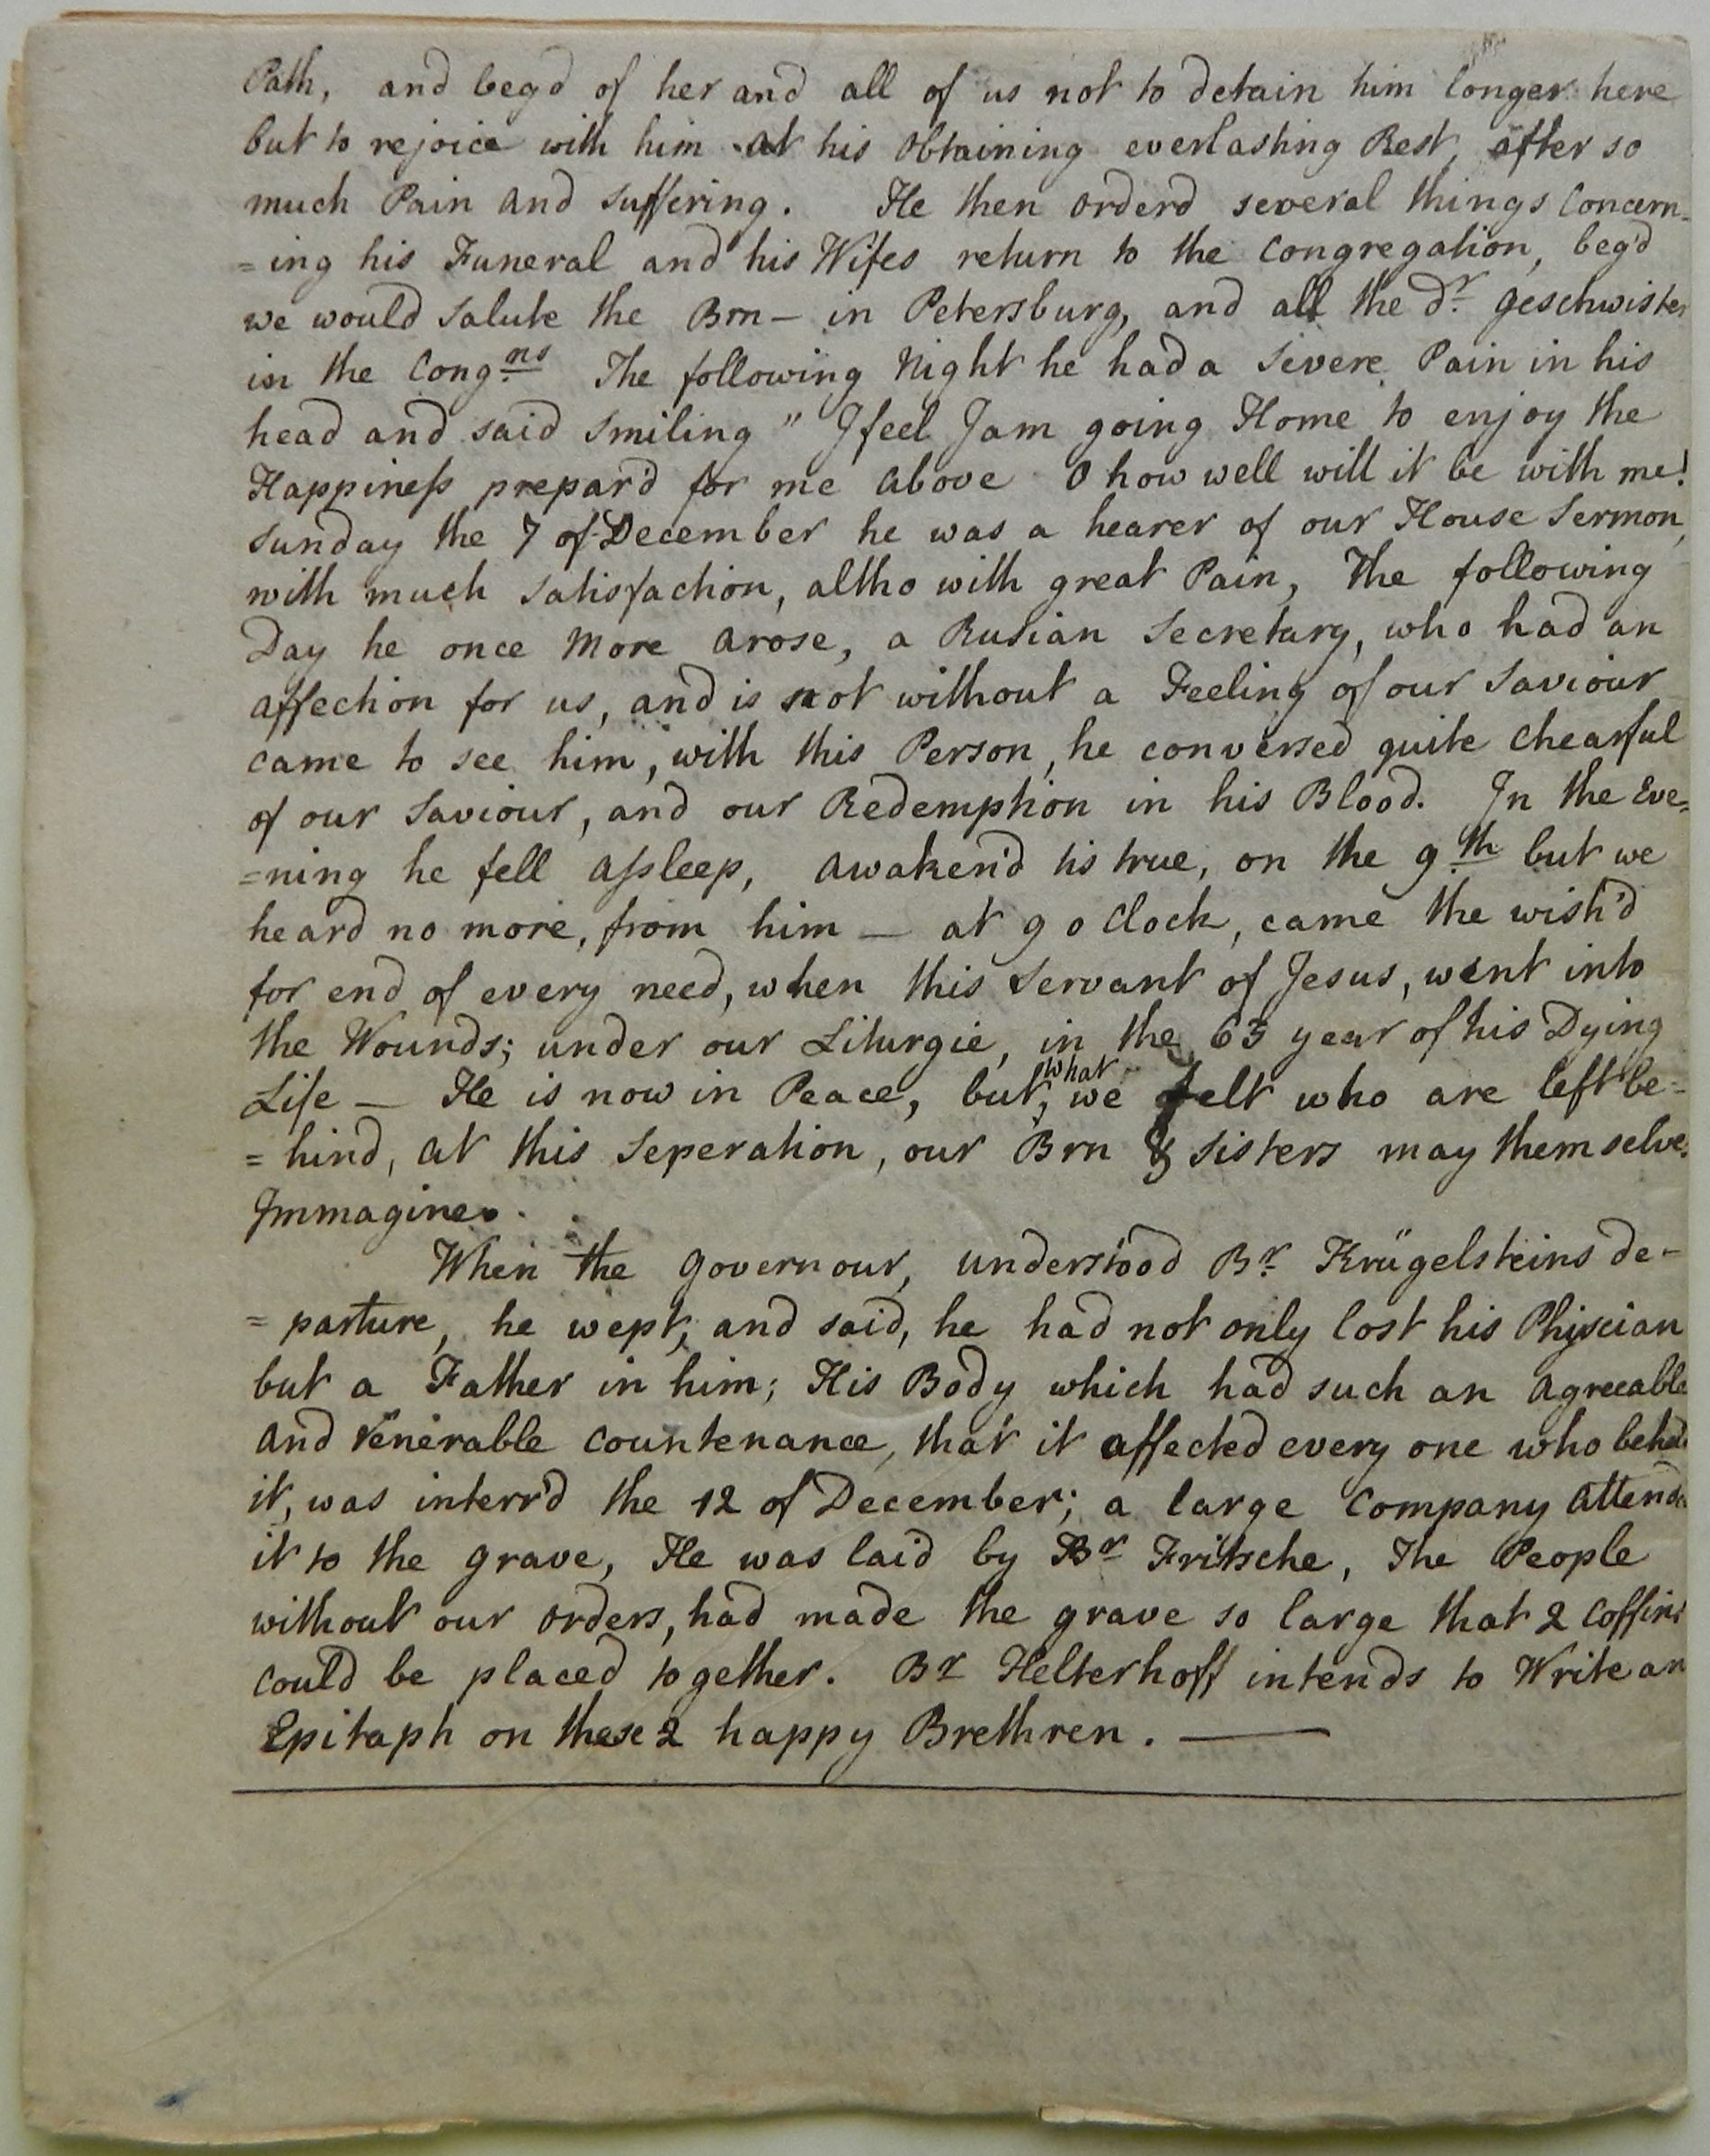 Path, and beg'd of her and all of us not to detain him longer here
but to rejoice with him at his obtaining everlasting Rest, after so
much Pain and suffering. He then orderd several things Concern-
=ing his Funeral and his Wifes return to the Congregation, beg'd
we would salute the Brn - in Petersburg, and all the dr. geschwister
in the Congns. The following Night he had a severe Pain in his
head and said smiling " I feel I am going Home to enjoy the
Happiness prepar'd for me above O how well will it be with me!
Sunday the 7 of December he was a hearer of our House Sermon,
with much satisfaction, altho with great Pain, The following
Day he once More arose, a Rusian Secretary, who had an
affection for us, and is not without a Feeling of our Saviour
came to see him, with this Person, he conversed quite Chearful
of our Saviour, and our Redemption in his Blood. In the Eve=
=ning he fell Asleep, awaken'd tis true, on the 9th but we
heard no more, from him — at 9 o Clock, came the wish'd
for end of every need, when this Servant of Jesus, went into
the Wounds; under our Liturgie, in the 63 year of his Dying
Life — He is now in Peace, but, what we felt who are left be=
=hind, at this Seperation, our Brn & Sisters may themselves
Immagine.
When the Governour, understood Br. Krügelsteins de-
=parture, he wept, and said, he had not only lost his Phiscian
but a Father in him; His Body which had such an agreeable
and Venerable Countenance, that it affected every one who beheld
it, was interr'd the 12 of December; a large Company Attended
it to the grave, He was laid by Br Fritsche, The People
without our Orders, had made the grave so large that 2 Coffins
could be placed together. Br Helterhoff intends to Write an
Epitaph on these 2 happy Brethren. —